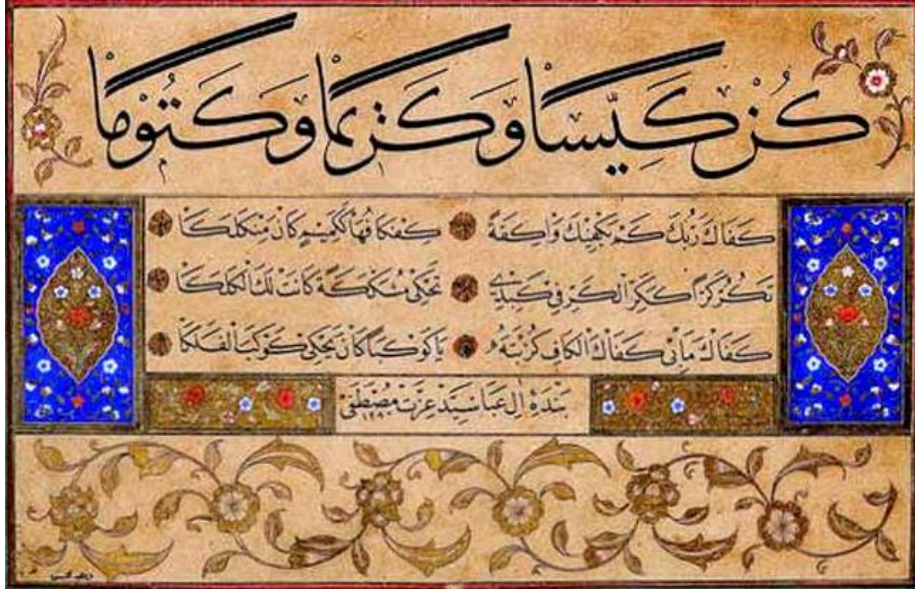 كُنْ كَيِّسًا وَكَرِيمًا وَكَتُومًا
كَفَاكَ رَبُّكَ كَمْ يَكْفِيكَ وَاكِفَةً كِفْكَافُهَا كَكَمِينٍ كَانَ مِنْ كَلَكَا
تَكُرُّ كَرًّا كَكَرِّ الْكَرِّ فِي كَبَدِي تَحْكِي مُشَكْشَكَةً كَانَتْ لَكَ الْكَلَكَا
كَفَاكَ مَا بِي كَفَاكَ الْكَافُ كُرْبَتَهُ يَا كَوْكَبًا كَانَ يَحْكِي كَوْكَبَ الْفَلَكَا
بندهٔ آل عبا سيد عزت مصطفى